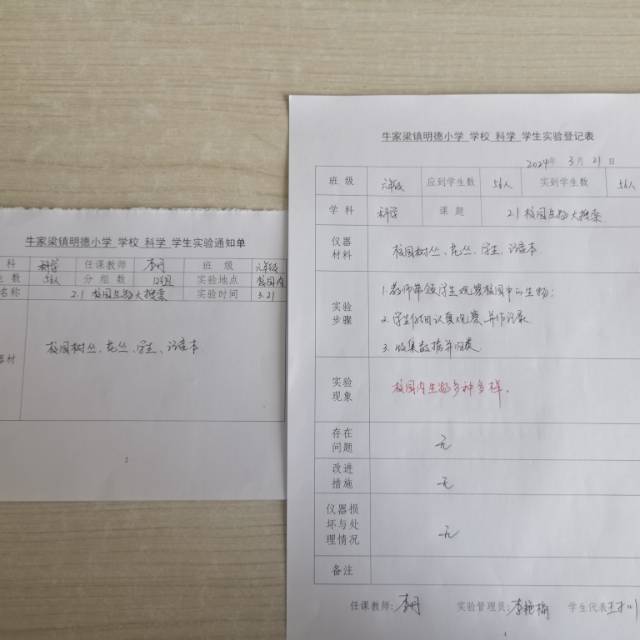 牛家梁镇明德小学 学校 科学 学生实验通知单
科 科学 任课教师 班 级 六年级
生数 分组数 12组 实验地点 校园内
名称 2.1 校园生物大搜索 实验时间 3.21
器材 校园树丛、花丛、学生、记录本
牛家梁镇明德小学 学校 科学 学生实验登记表
2024年 3月 21日
班 级 六年级 应到学生数 56人 实到学生数 56人
学 科 科学 课 题 2.1 校园生物大搜索
仪器材料 校园树丛、花丛、学生、记录本
实验步骤 1.教师带领学生观察校园中的生物;
2.学生仔细认真观察并作记录
3.收集数据并记录
实验现象 校园内生物多种多样。
存在问题 无
改进措施 无
仪器损坏与处理情况 无
备注
任课教师: 实验管理员: 学生代表